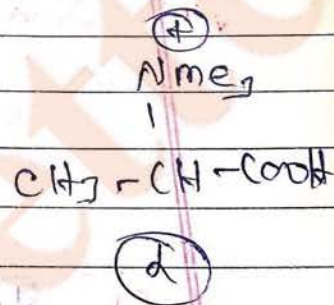 +
NMe3
CH3-CH-COOH
d